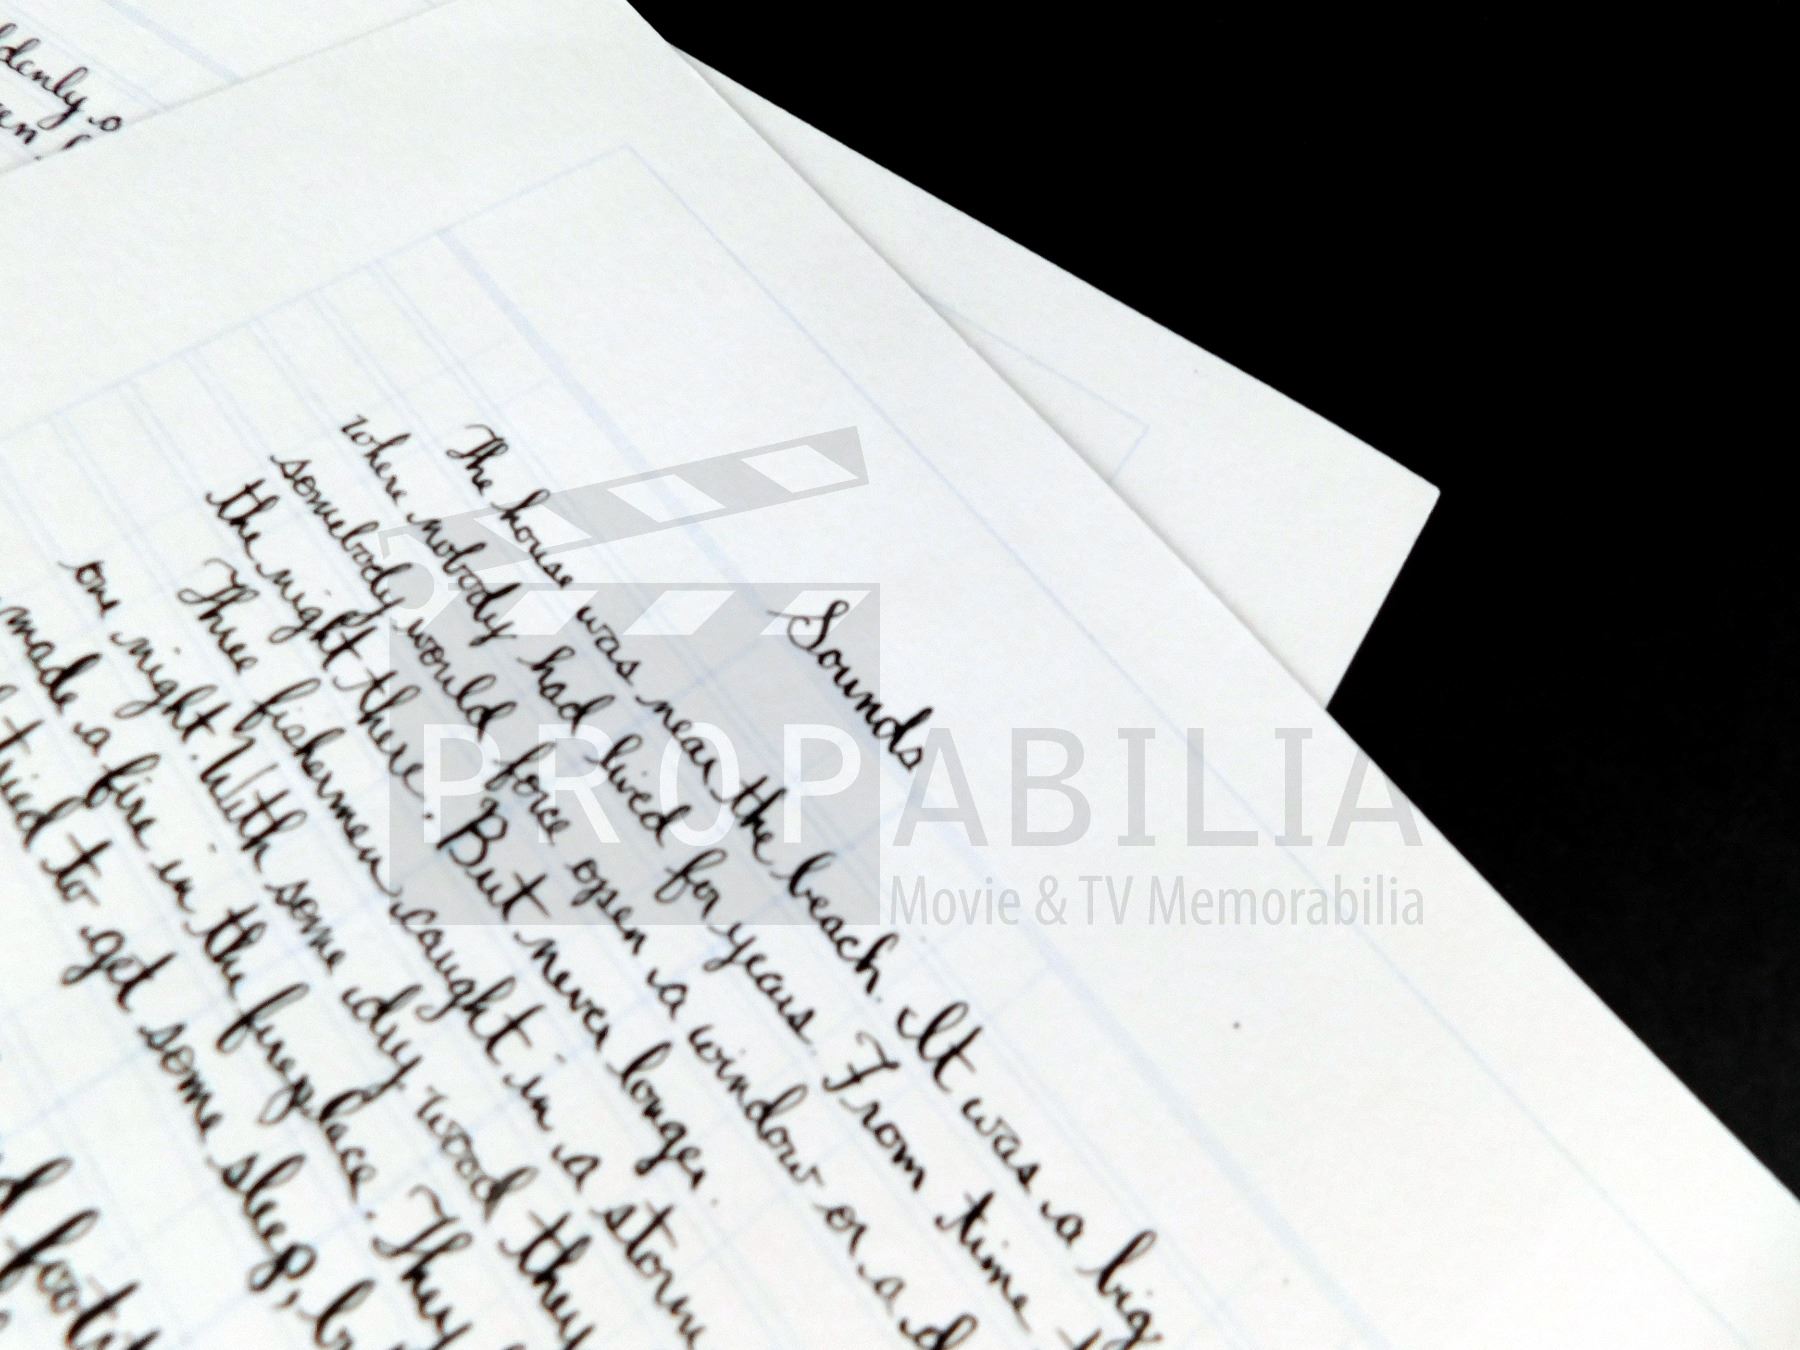 Sounds
The house was near the beach. It was a big
where nobody had lived for years. From time
somebody would force open a window or a d
the night there. But never longer.
Three fishermen caught in a storm
one night. With some dry wood they
made a fire in the fireplace. They
tried to get some sleep, b
foots
denly o
PROPABILIA
Movie & TV Memorabilia